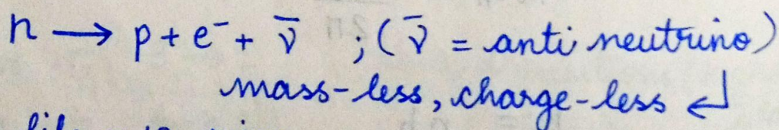 n → p + e⁻ + ν̄ ; (ν̄ = anti neutrino)
mass-less, charge-less ↲